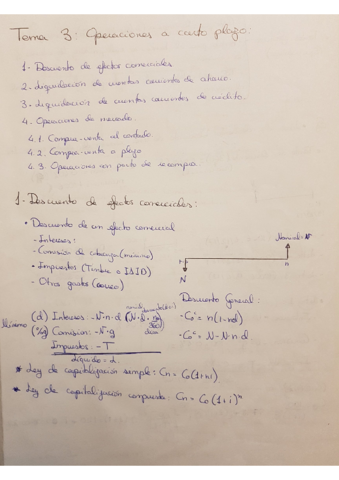 Tema 3: Operaciones a corto plazo.
1- Descuento de efectos comerciales
2- Liquidación de cuentas corriente de ahorro
3- Liquidación de cuentas corrientes de crédito.
4. Operaciones de mercado.
4.1. Compra-venta al contado
4.2. Compra-venta a plazo
4.3. Operaciones con pacto de recompra.
1- Descuento de efectos comerciales:
• Descuento de un efecto comercial
- Intereses:
- Comisión de cobranza (mínimo)
- Impuestos (Timbre o IAJD)
- Otros gastos (correo)
Nominal = N
N
n
Descuento General:
(d) Intereses: - N·n·d
- Co = n(1-nd)
Mínimo
(%g) Comisión: - N·g
- Co = N - N·n·d
Impuestos: - T
Líquido = L
* Ley de capitalización simple: Cn = Co(1+ni)
* Ley de capitalización compuesta: Cn = Co(1+i)ⁿ